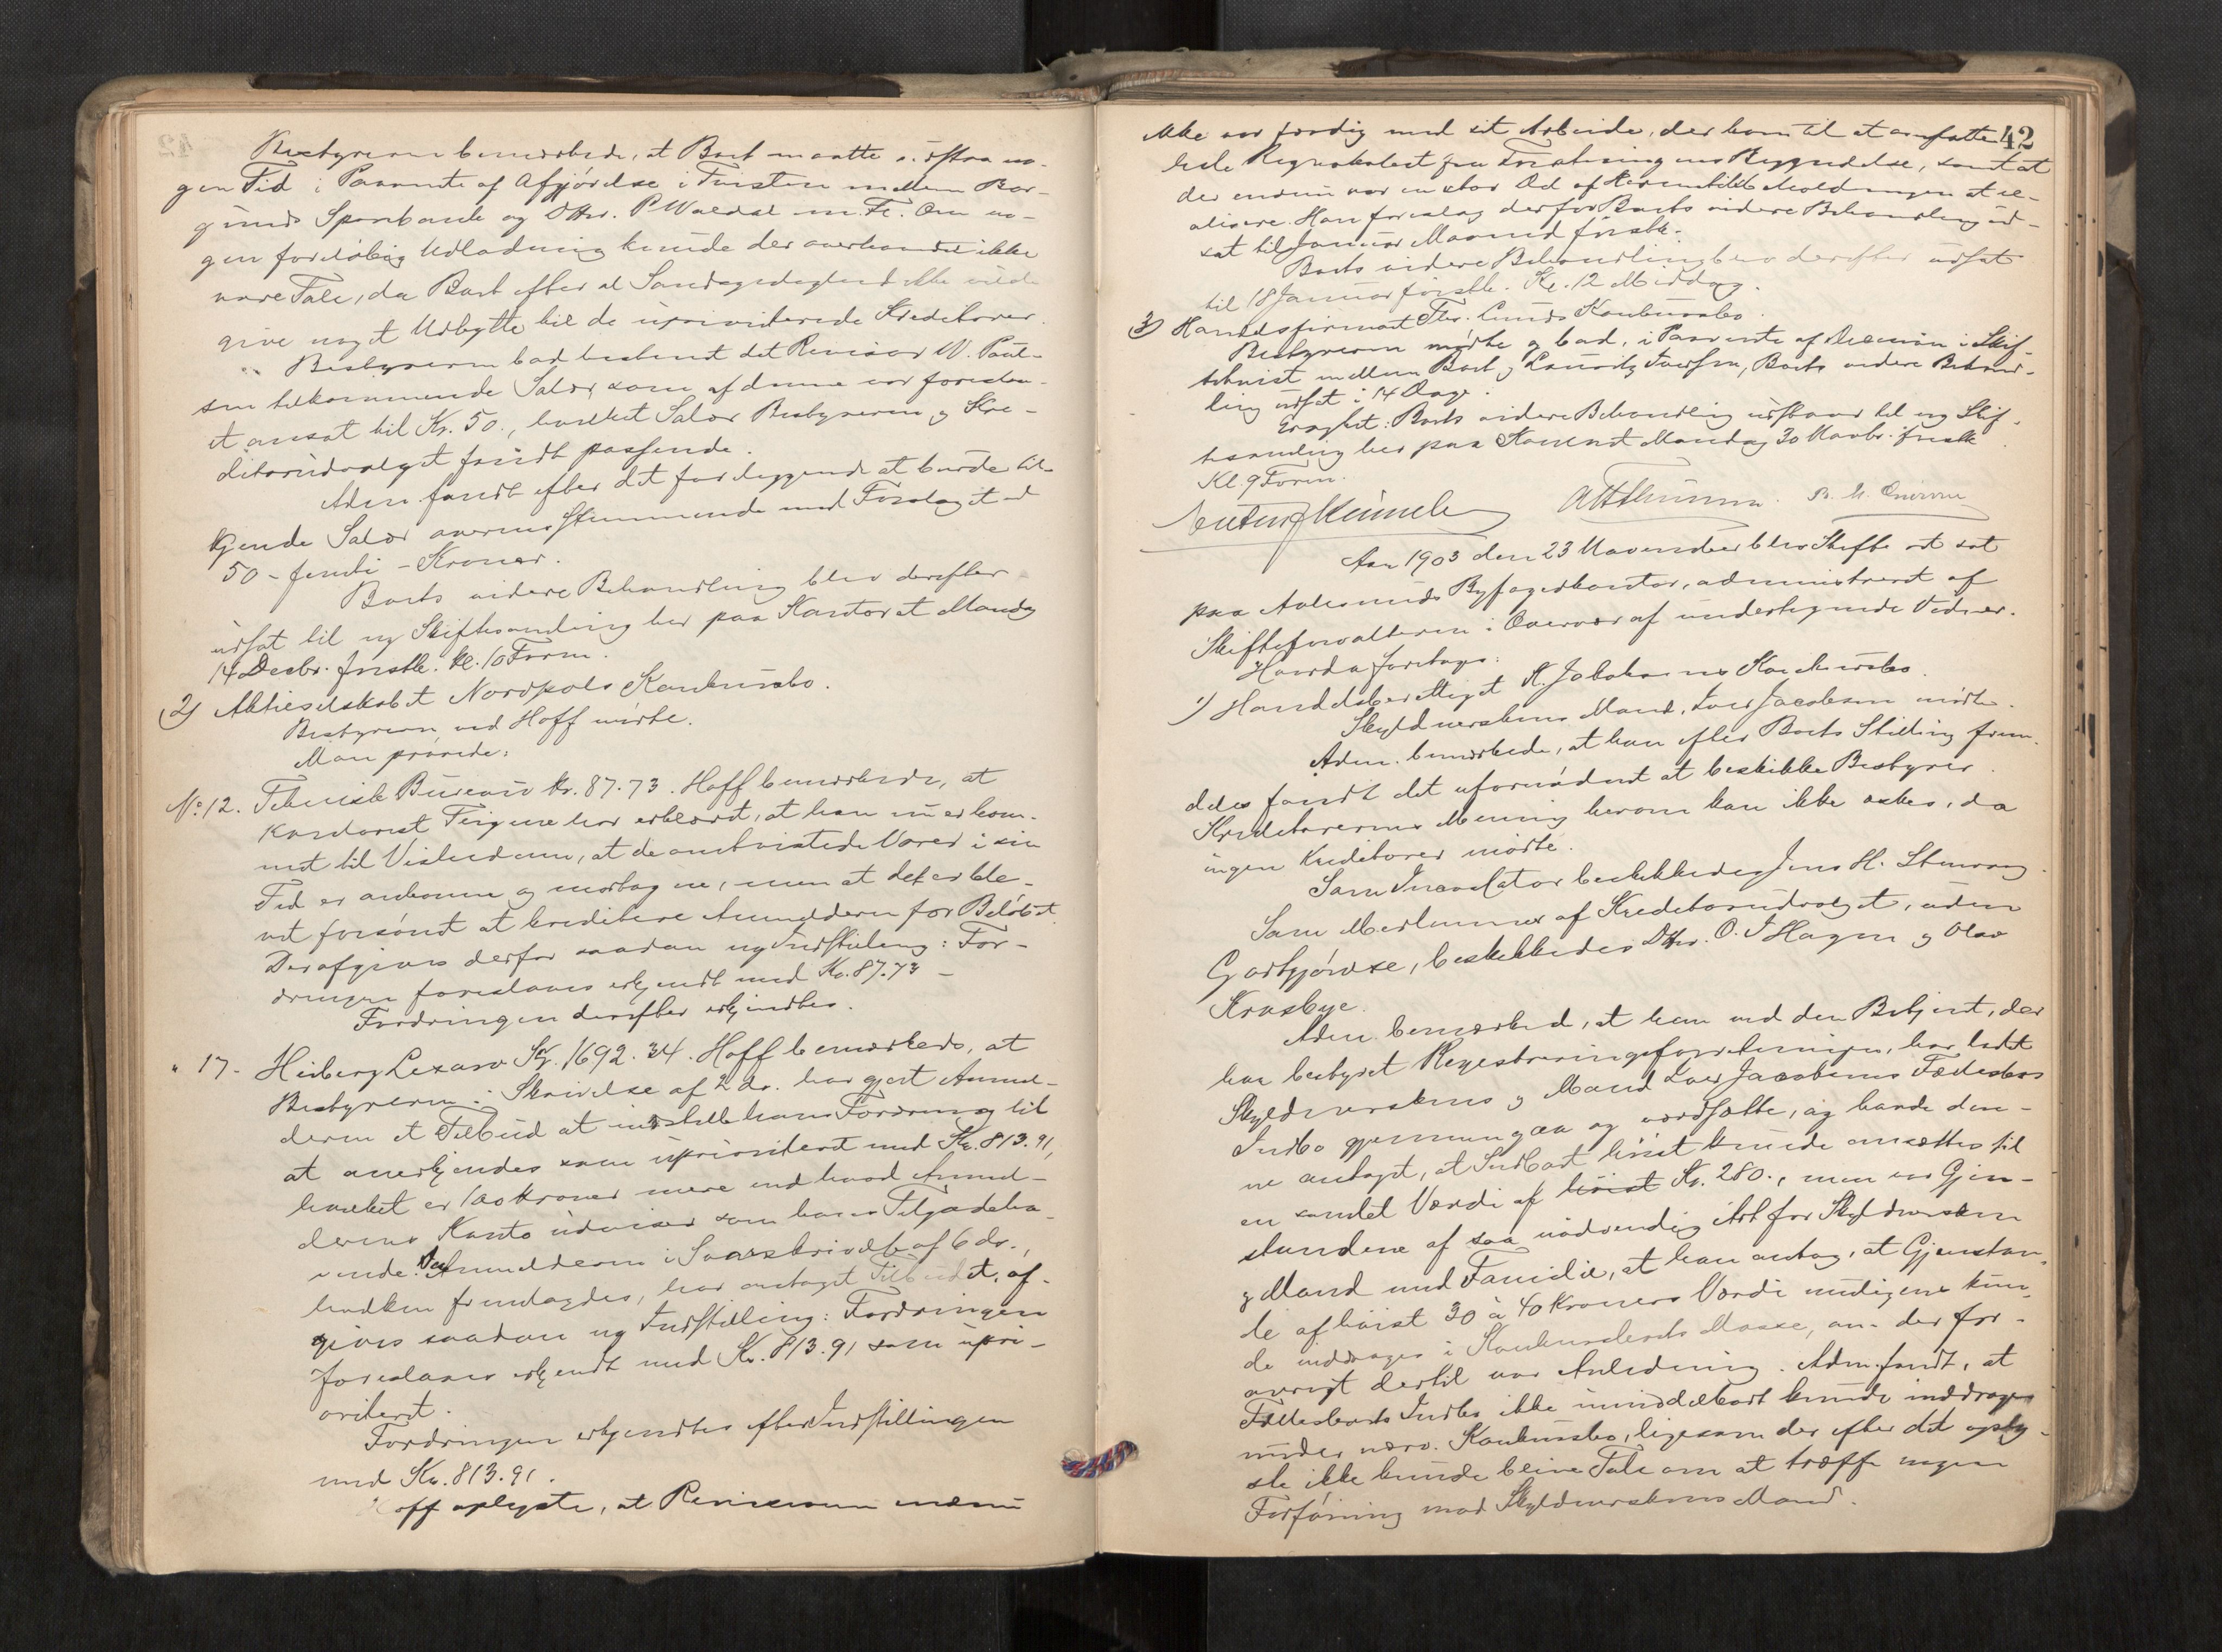 Bestyreren bemærkede, at Boet maatte udstaa no-
gen Tid i Paavente af Afgjørelse i Tvisten mellem Bor-
gunds Sparebank og DHrr. P Waldal m. Fl. Om no-
gen foreløbig Udlodning kunde der overhovedet ikke
være Tale, da Boet efter al Sandsynlighed ikke vilde
give noget Udbytte til de uprioriterede Kreditorer.
Bestyreren bad bestemt det Revisor W. Paul-
sen tilkommende Salær, som af denne var foreslaa-
et ansat til Kr. 50., hvilket Salær Bestyreren og Kre-
ditorudvalget fandt passende.
Adm. fandt efter det foreliggende at burde til-
kjende Salær overensstemmende med Forslaget
50 - femti - Kroner.
Boets videre Behandling blev derefter
udsat til ny Skiftesamling her paa Kontoret Mandag
14 Decbr. førstk. Kl. 10 Form.
2) Aktieselskabet Nordpols Konkursbo.
Bestyreren ved Hoff mødte.
Man prøvede:
No. 12. Teknisk Bureau Kr. 87.73. Hoff bemærkede, at
Kontorist har erklæret, at han nu er kom-
met til Vished om, at de omtvistede Varer i sin
Tid er ankomne og modtagne, men at det er ble-
vet forsømt at kreditere Anmelderen for Beløbet.
Der afgives derfor saadan ny Indstilling: For-
dringen foreslaaes erkjendt med Kr. 87.73 -
Fordringen derefter erkjendtes.
" 17. Heiberg Kr. 1692.34. Hoff bemærkede, at
Bestyreren i Skrivelse af 2 ds. har gjort Anmel-
deren et Tilbud at indstille hans Fordring til
at anerkjendes som uprioriteret med Kr. 813.91,
hvilket er 100 Kroner mere end hvad Anmel-
derens Konto udviser som hans Tilgodeha-
vende. Da Anmelderen i Svarskrivelse af 6 ds.,
hvilken fremlagdes, har antaget Tilbudet, af-
gives saadan ny Indstilling: Fordringen
foreslaaes erkjendt med Kr. 813.91 som upri-
oriteret.
Fordringen erkjendtes efter Indstillingen
med Kr. 813.91.
Hoff oplyste, at Revisoren endnu
42
ikke var færdig med sit Arbeide, der kom til at omfatte
hele Regnskabet fra Forretningens Begyndelse, samt at
der endnu var en stor Del af at re-
alisere. Han foreslog derfor Boets videre Behandling ud-
sat til Januar Maaned førstk.
Boets videre Behandling blev derefter udsat
til 18 Januar førstk. Kl. 12 Middag.
3) Handelsfirmaet Thr. Lunds Konkursbo.
Bestyreren mødte og bad, i Paavente af Decision i Skif-
tetvist mellem Boet og Lauritz Iversen, Boets videre Behand-
ling udsat i 14 Dage.
Eragtet: Boets videre Behandling udstaar til ny Skif-
tesamling her paa Kontoret Mandag 30 Novbr. førstk
Kl. 9 Form.
Aar 1903 den 23 November blev Skifteret sat
paa Aalesunds Byfogedkontor, administreret af
Skifteforvalteren i Overvær af undertegnede Vidner.
Hvorda foretoges:
1) Handelsberettiget K. Jakobsens Konkursbo.
Skyldnerskens Mand, Iver Jacobsen mødte.
Adm. bemærkede, at han efter Boets Stilling frem-
deles fandt det ufornødent at beskikke Bestyrer.
Kreditorernes Mening herom kan ikke æskes, da
ingen Kreditorer mødte.
Som Incassator beskikkedes Jens H. Stenvaag.
Som Medlemmer af Kreditorudvalget, uden
Godtgjørelse, beskikkedes DHrr. O. J Hagen og Olav
Kraabye.
Adm. bemærked, at han ved den Betjent, der
har bestyret Registreringsforretningen, har ladet
Skyldnerskens og Mand Iver Jacobsens Fællesbos
Indbo gjennemgaa og værdsætte, og havde den-
ne antaget, at Indboet høist kunde ansættes til
en samlet Værdi af høist Kr. 280., men var Gjen-
standene af saa nødvendig Art for Skyldnersken
og Mand med Familie, at han antog, at Gjenstan-
de af høist 30 à 40 Kroners Værdi muligens kun-
de inddrages i Konkursboets Masse, om der for-
øvrigt dertil var Anledning. Adm. fandt, at
Fællesboets Indbo ikke umiddelbart kunde inddrages
under nærv. Konkursbo, ligesom der efter det oply-
ste ikke kunde blive Tale om at træffe nogen
Forføining mod Skyldnerskens Mand.